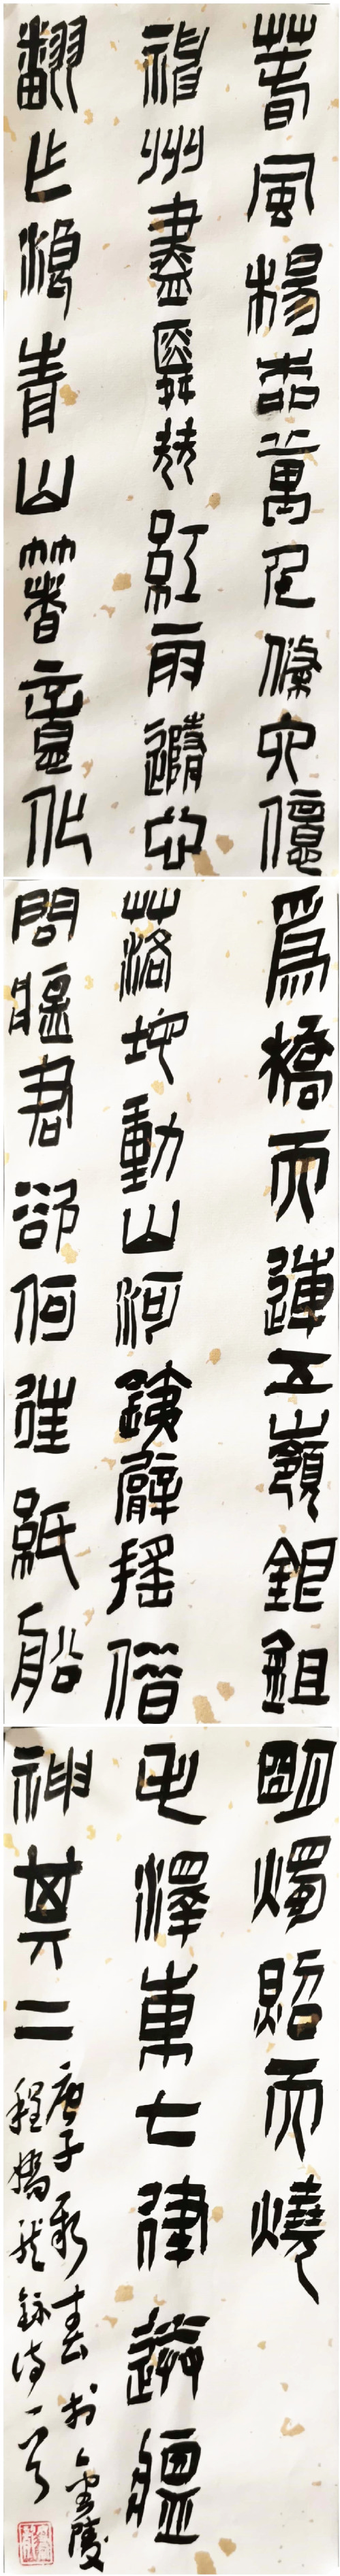 春風楊柳萬千條六億
神州盡舜堯紅雨隨心
翻作浪青山著意化
為橋天連五嶺銀鉏
落地動山河鐵臂搖借
問瘟君欲何往紙船
明燭照天燒
毛澤東七律送瘟
神其二
庚子新春於金陵
程錄詩一首